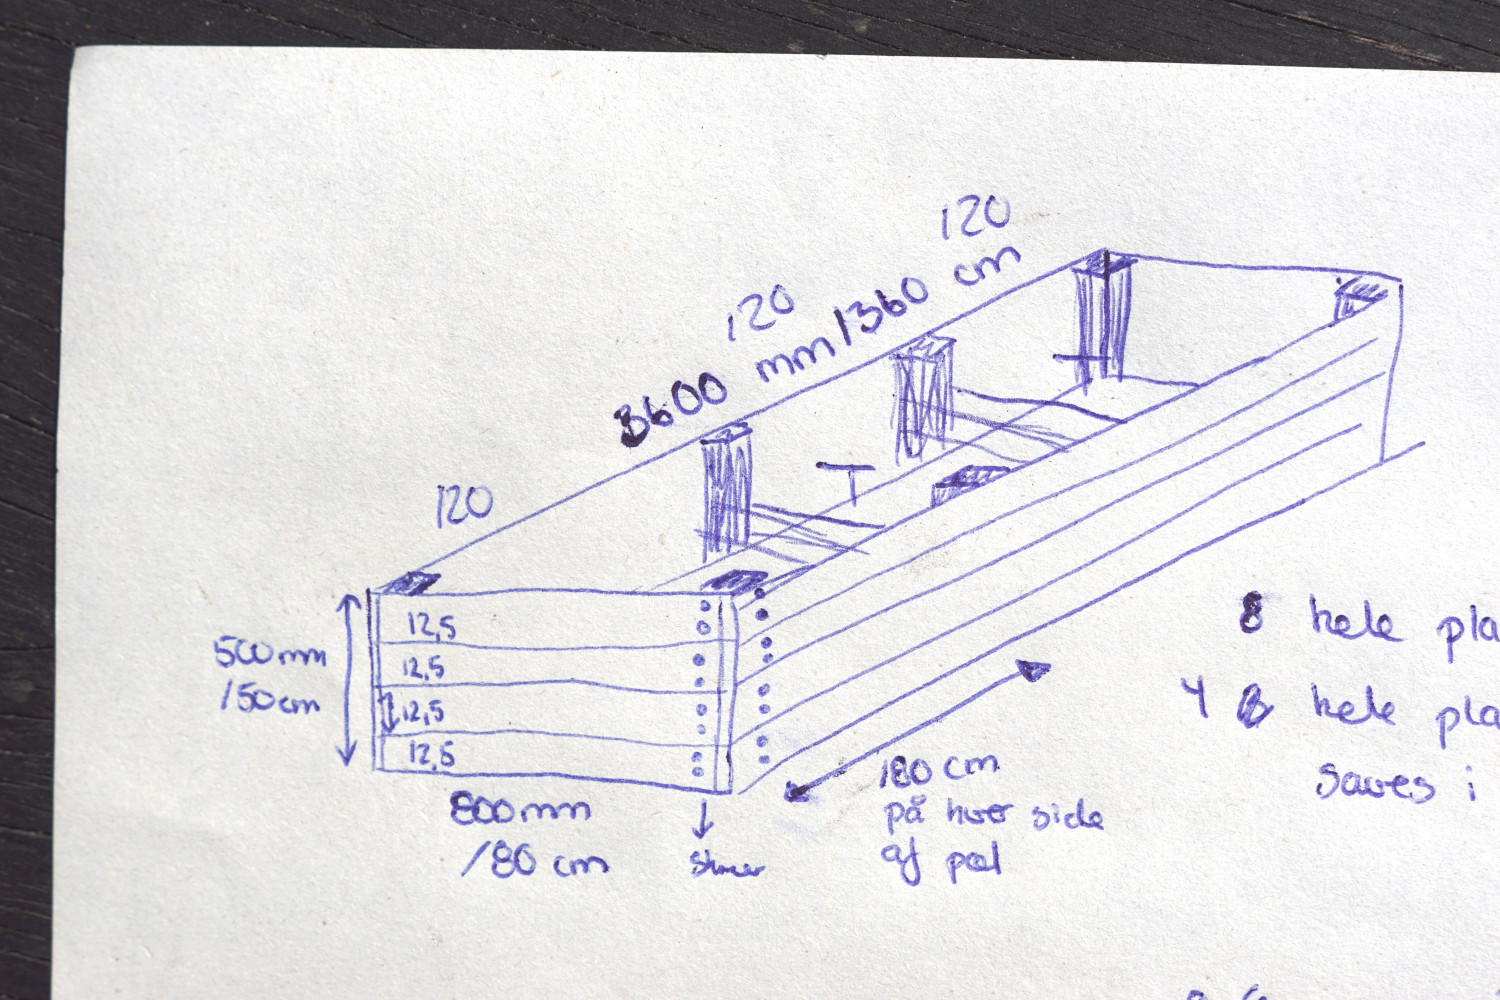 120
120
3600 mm/360 cm
120
12,5
12,5
12,5
12,5
500mm
/50cm
800mm
/80 cm
180 cm
på hver side
af pæl
8 hele pla
4 hele pla
saves i